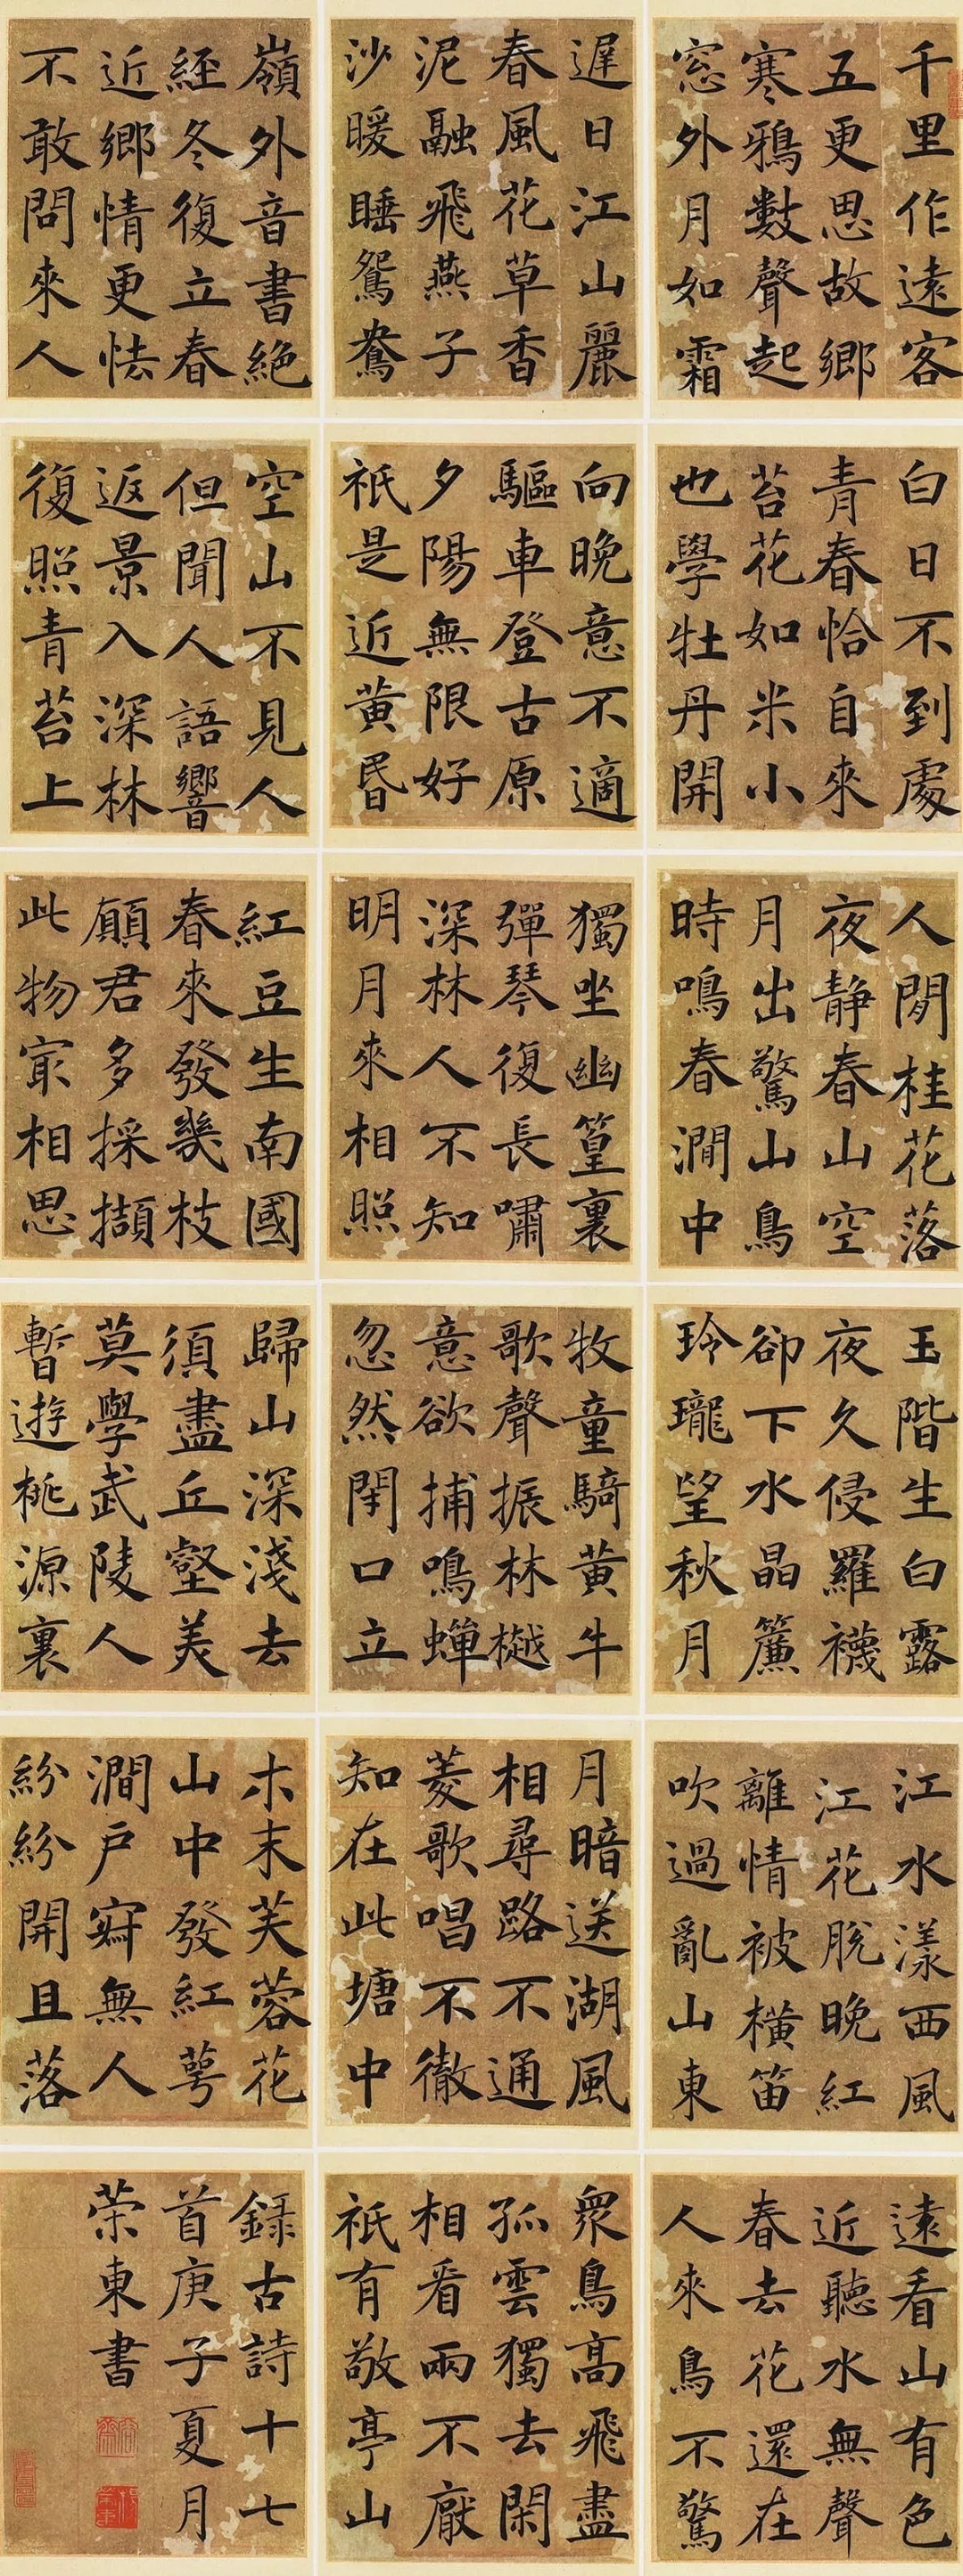 千里作遠客
五更思故鄉
寒鴉數聲起
窓外月如霜
遲日江山麗
春風花草香
泥融飛燕子
沙暖睡鴛鴦
嶺外音書絕
經冬復立春
近鄉情更怯
不敢問來人
白日不到處
青春恰自來
苔花如米小
也學牡丹開
向晚意不適
驅車登古原
夕陽無限好
祇是近黃昬
空山不見人
但聞人語響
返景入深林
復照青苔上
人閒桂花落
夜靜春山空
月出驚山鳥
時鳴春澗中
獨坐幽篁裏
彈琴復長嘯
深林人不知
明月來相照
紅豆生南國
春來發幾枝
願君多採擷
此物冣相思
玉階生白露
夜久侵羅襪
卻下水晶簾
玲瓏望秋月
牧童騎黃牛
歌聲振林樾
意欲捕鳴蟬
忽然閉口立
歸山深淺去
須盡丘壑美
莫學武陵人
暫遊桃源裏
江水漾西風
江花脫晚紅
離情被橫笛
吹過亂山東
月暗送湖風
相尋路不通
菱歌唱不徹
知在此塘中
木末芙蓉花
山中發紅萼
澗戶寂無人
紛紛開且落
遠看山有色
近聽水無聲
春去花還在
人來鳥不驚
眾鳥高飛盡
孤雲獨去閑
相看兩不厭
祇有敬亭山
錄古詩十七
首庚子夏月
榮東書